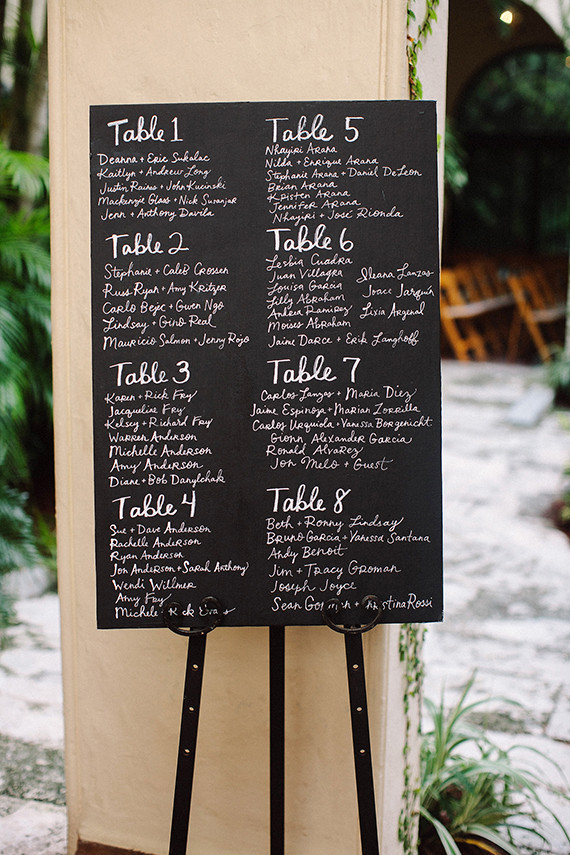 Table 1
Deanna + Eric Sukalac
Kaitlyn + Andrew Long
Justin Raines + John Kucinski
Mackenzie Glass + Nick Suranjar
Jenn + Anthony Davila
Table 2
Stephanie + Caleb Crossen
Russ Ryan + Amy Kritzer
Carlo Bejec + Gwen Ngo
Lindsay + Gino Real
Mauricio Salmon + Jenny Rojo
Table 3
Karen + Rick Fry
Jacqueline Fry
Kelsey + Richard Fry
Warren Anderson
Michelle Anderson
Amy Anderson
Diane + Bob Danylchak
Table 4
Sue + Dave Anderson
Rachelle Anderson
Ryan Anderson
Jon Anderson + Sarah Anthony
Wendi Willmer
Amy Fry
Michele + Rick Evans
Table 5
Nhayiri Arana
Nilda + Enrique Arana
Stephanie Arana + Daniel DeLeon
Brian Arana
Kristen Arana
Jennifer Arana
Nhayiri + José Rionda
Table 6
Lesbia Cuadra
Juan Villagra
Louisa Garcia
Lilly Abraham
Andrea Ramirez
Moises Abraham
Jaime Darce + Erik Langhoff
Ileana Lanzas
Joace Jarquín
Lixia Argenal
Table 7
Carlos Lanzas + Maria Diez
Jaime Espinoza + Marian Zorrilla
Carlos Urquiola + Vanessa Borgenicht
Gionn Alexander Garcia
Ronald Alvarez
Jon Melo + Guest
Table 8
Beth + Ronny Lindsay
Bruno Garcia + Vanessa Santana
Andy Benoit
Jim + Tracy Groman
Joseph Joyce
Sean Gorman + Kristina Rossi